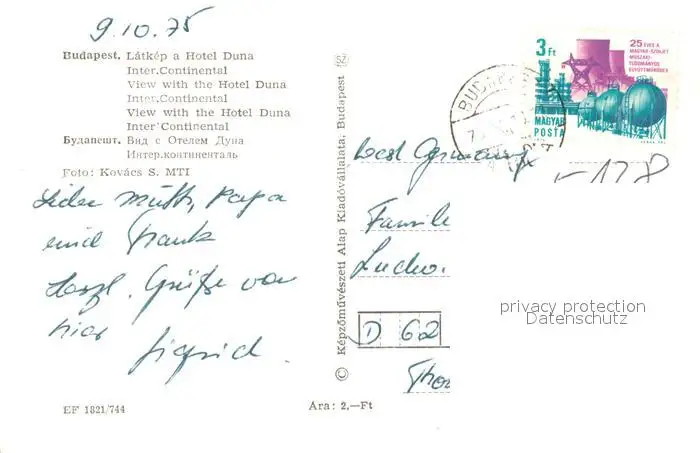 9.10.75
Budapest. Látkép a Hotel Duna
Inter.Continental
View with the Hotel Duna
Inter.Continental
View with the Hotel Duna
Inter'Continental
Будапешт. Вид с Отелем Дуна
Интер.континенталь
Foto: Kovács S. MTI
Lieber Mutti, Papa
und Frank
Herzl. Grüße von
hier
Sigrid.
EF 1821/744
Ara: 2,—Ft
© Képzőművészeti Alap Kiadóvállalata, Budapest
SZ
BUDAPEST
3 Ft
25 ÉVES A
MAGYAR-SZOVJET
MŰSZAKI-
TUDOMÁNYOS
EGYÜTTMŰKÖDÉS
MAGYAR
POSTA
West Germany
178
Familie
Ludw.
D 62
Thor
privacy protection
Datenschutz